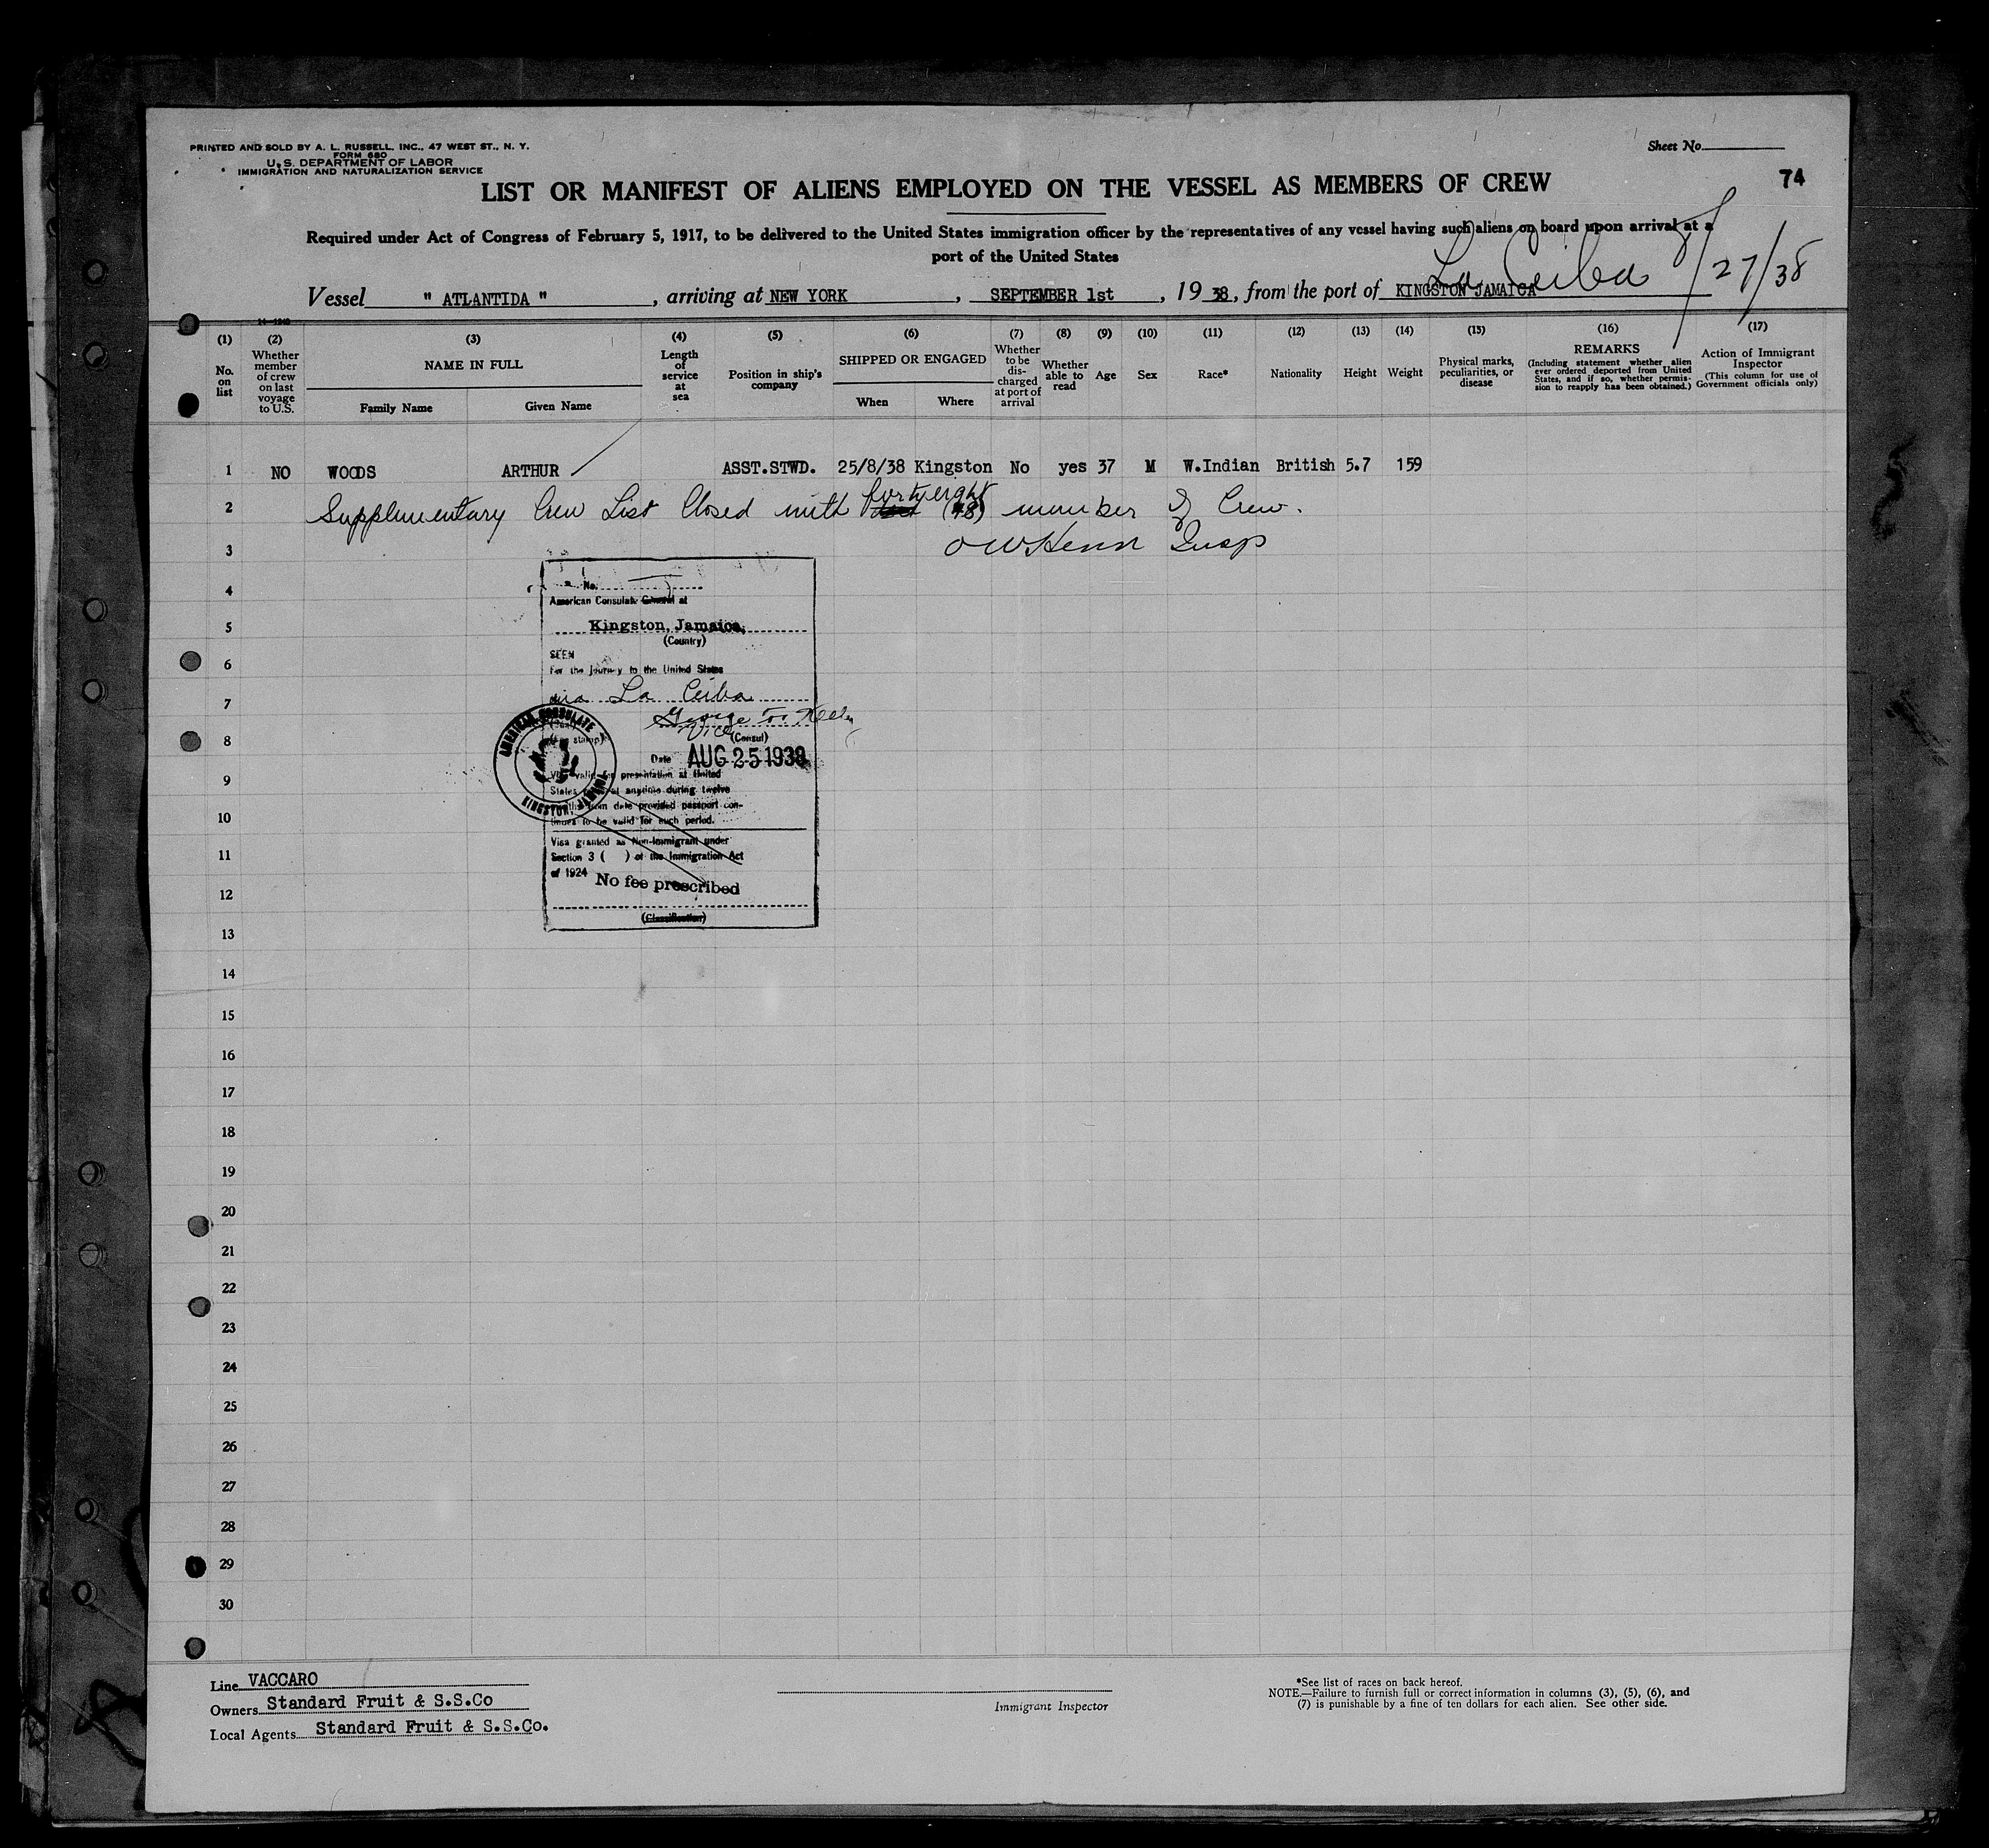 PRINTED AND SOLD BY A. L. RUSSELL, INC., 47 WEST ST., N. Y.
FORM 680
U. S. DEPARTMENT OF LABOR
IMMIGRATION AND NATURALIZATION SERVICE
Sheet No.
LIST OR MANIFEST OF ALIENS EMPLOYED ON THE VESSEL AS MEMBERS OF CREW
74
Required under Act of Congress of February 5, 1917, to be delivered to the United States immigration officer by the representatives of any vessel having such aliens on board upon arrival at a
port of the United States
La Ceiba 8/27/38
Vessel " ATLANTIDA ", arriving at NEW YORK, SEPTEMBER 1st, 1938, from the port of KINGSTON JAMAICA
(1) (2) (3) (4) (5) (6) (7) (8) (9) (10) (11) (12) (13) (14) (15) (16) (17)
No. on list
Whether member of crew on last voyage to U.S.
NAME IN FULL
Family Name Given Name
Length of service at sea
Position in ship's company
SHIPPED OR ENGAGED
When Where
Whether to be discharged at port of arrival
Whether able to read
Age
Sex
Race*
Nationality
Height
Weight
Physical marks, peculiarities, or disease
REMARKS
(Including statement whether alien ever ordered deported from United States, and if so, whether permission to reapply has been obtained.)
Action of Immigrant Inspector
(This column for use of Government officials only)
1 NO WOODS ARTHUR ASST.STWD. 25/8/38 Kingston No yes 37 M W.Indian British 5.7 159
2 Supplimentary Crew List Closed with forty eight (48) member of Crew.
3 Insp
4
5
6
7
8
9
10
11
12
13
14
15
16
17
18
19
20
21
22
23
24
25
26
27
28
29
30
No.
American Consulate General at
Kingston, Jamaica,
(Country)
SEEN
For the journey to the United States
via La Ceiba
George
Vice (Consul)
Date AUG 25 1938
AMERICAN CONSULATE
KINGSTON, JAMAICA
Visa valid for presentation at United
States at anytime during twelve
months from date provided passport con-
tinues to be valid for such period.
Visa granted as Non-Immigrant under
Section 3 ( ) of the Immigration Act
of 1924 No fee prescribed
(Classification)
Line VACCARO
Owners Standard Fruit & S.S.Co
Local Agents Standard Fruit & S.S.Co.
Immigrant Inspector
*See list of races on back hereof.
NOTE.—Failure to furnish full or correct information in columns (3), (5), (6), and
(7) is punishable by a fine of ten dollars for each alien. See other side.